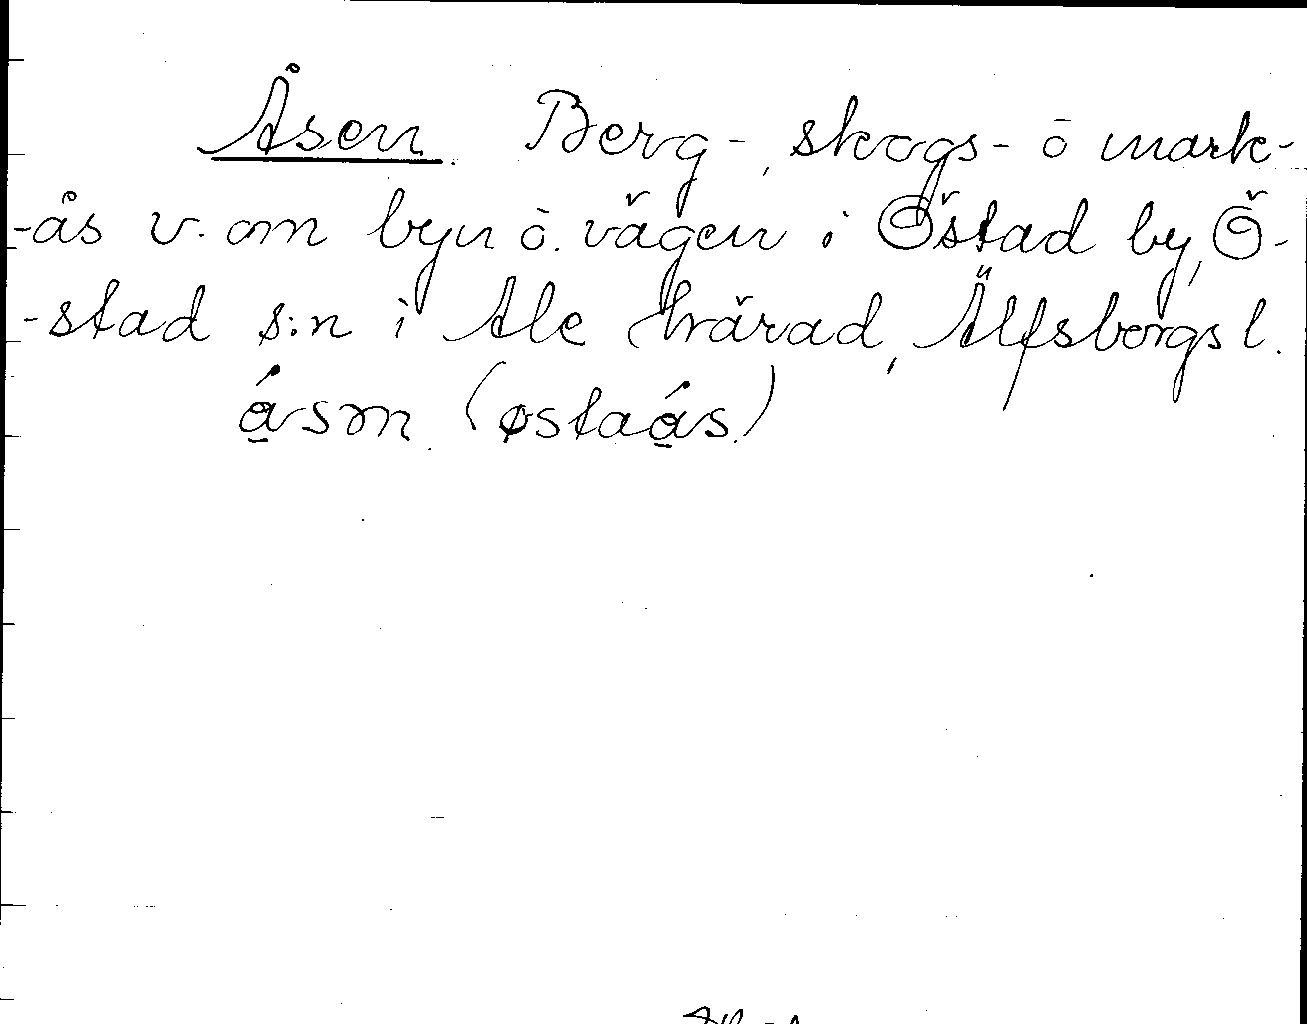 Åsen. Berg-, skogs- ō mark-
-ås v. om byn ō. vägen i Östad by, Ö-
-stad s:n i Ale härad, Älfsborgs l.
ǻ̱sən. (østaǻ̱s.)